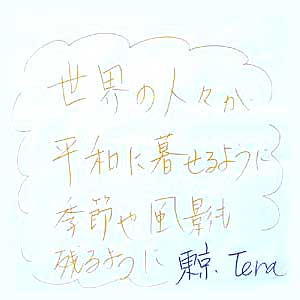 世界の人々が
平和に暮せるように
季節や風景も
残るように 東京. Tena